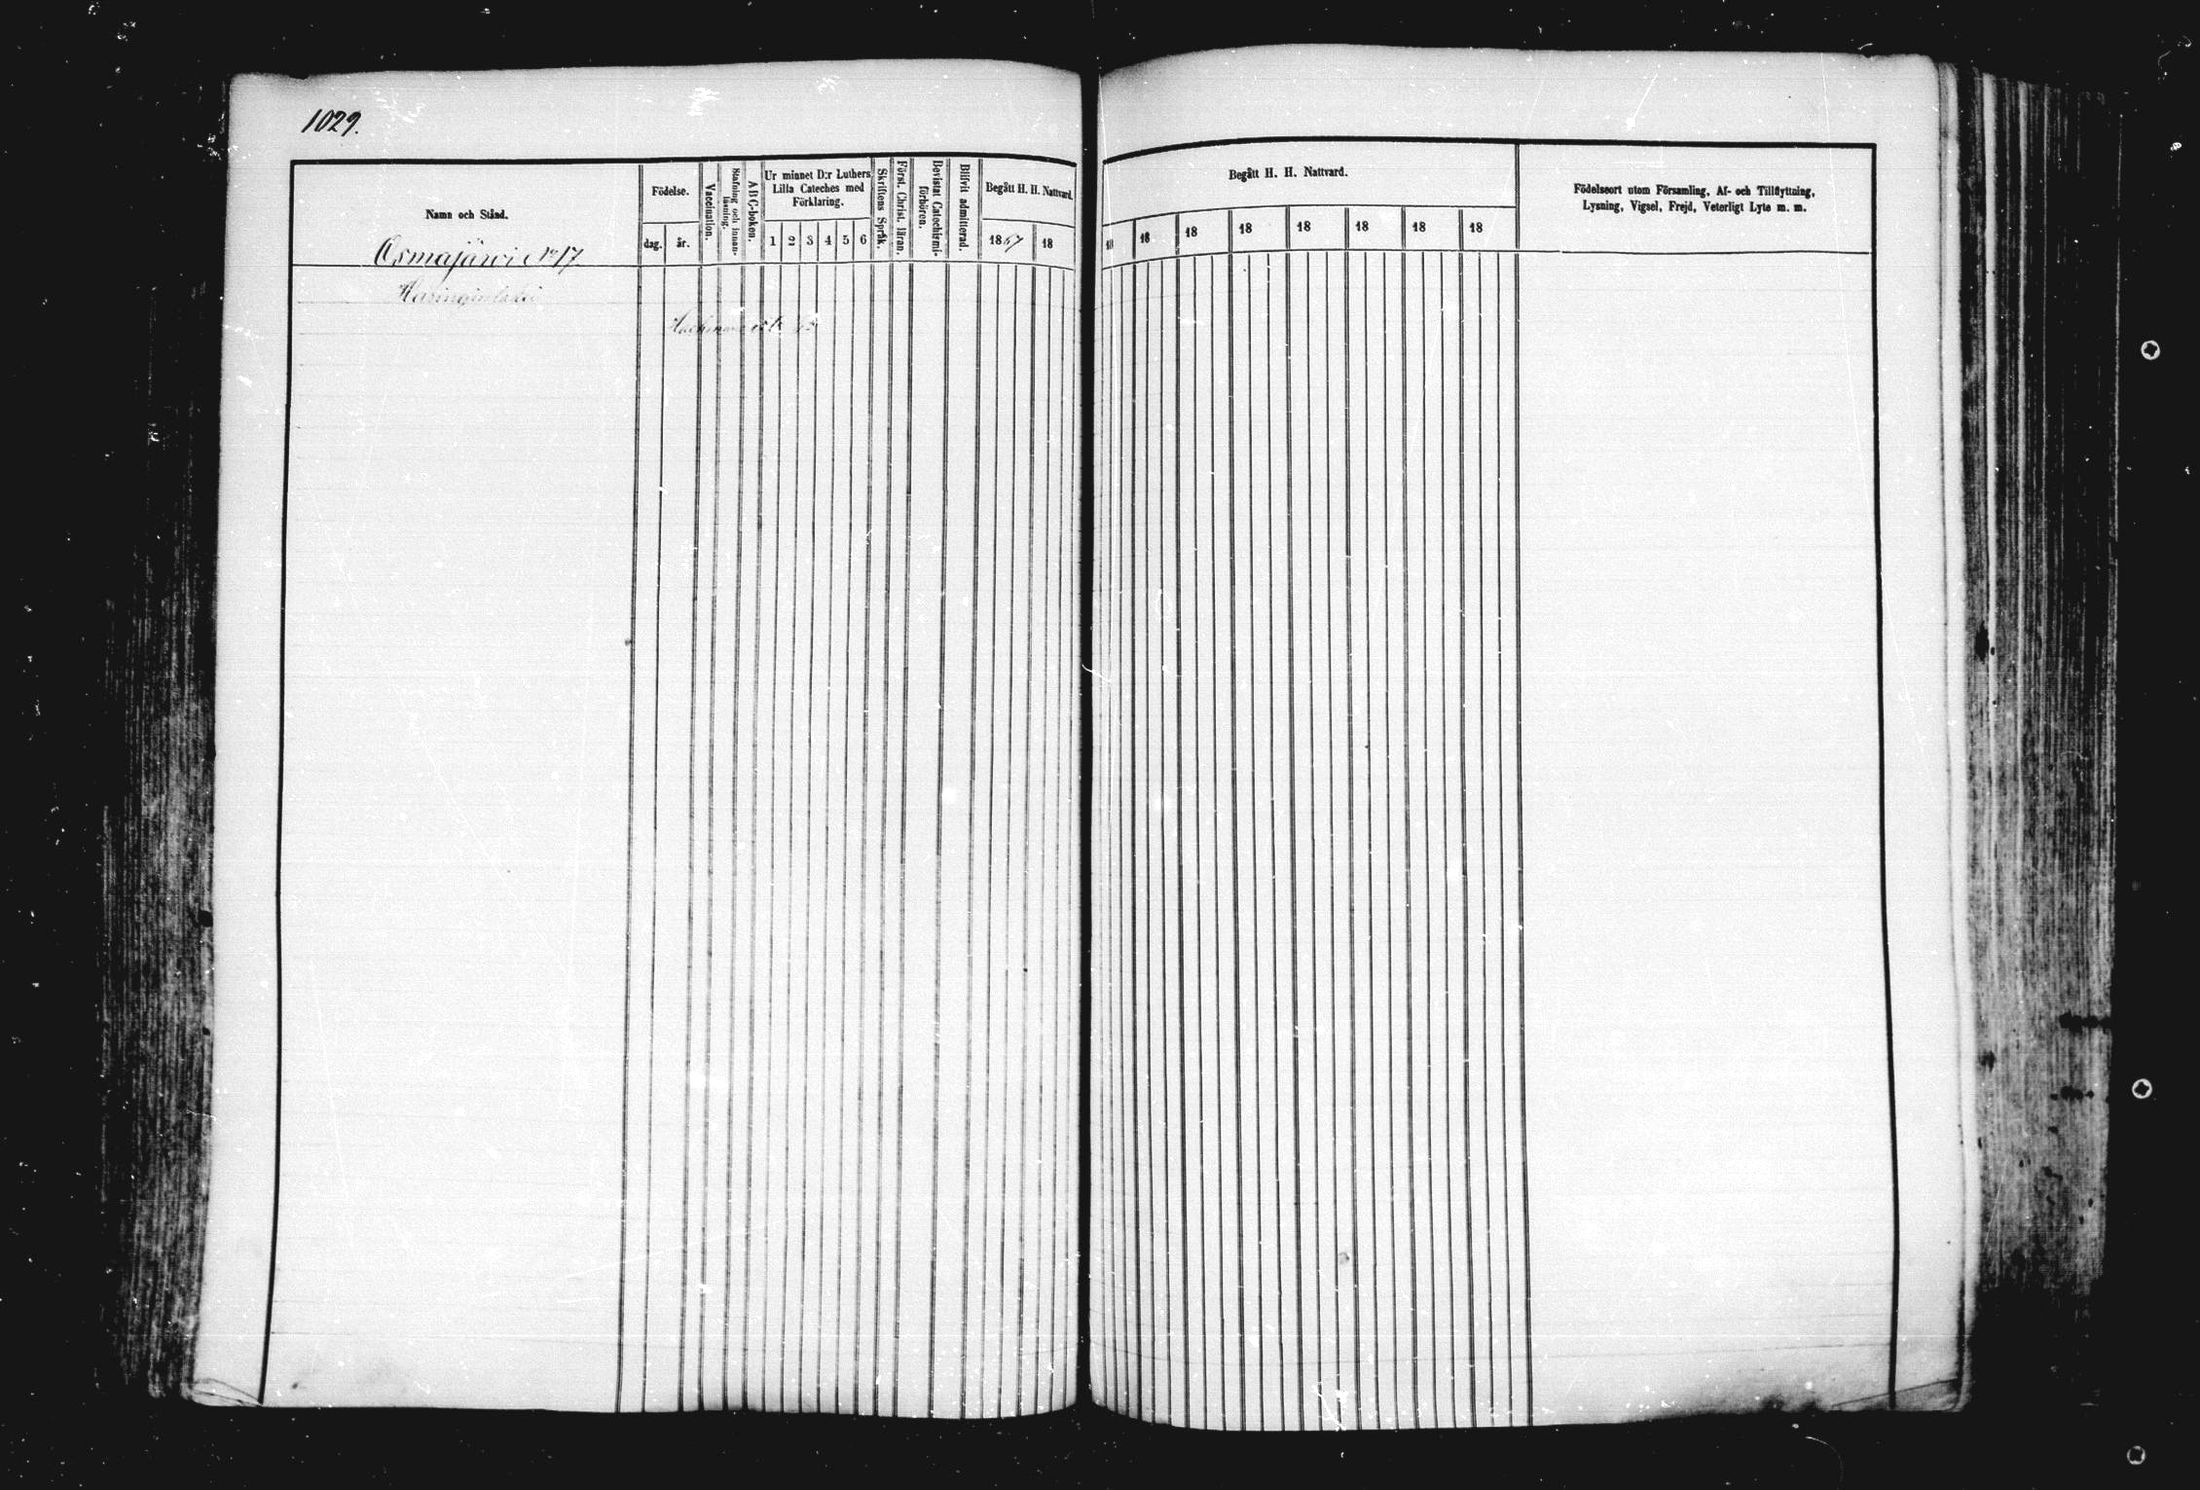 1029.
Namn och Stånd.
Osmajärwi No 17
Födelse.
dag. år.
Vaccination.
Stafning och innanläsning.
A B C-boken.
Ur minnet D:r Luthers Lilla Cateches med Förklaring.
1 2 3 4 5 6
Skriftens Språk.
Först. Christ. läran.
Bevistat Catechismiförhören.
Blifvit admitterad.
Begått H. H. Nattvard.
1867 18
Begått H. H. Nattvard.
18 18 18 18 18 18 18 18
Födelseort utom Församling, Af- och Tillflyttning, Lysning, Vigsel, Frejd, Veterligt Lyte m. m.